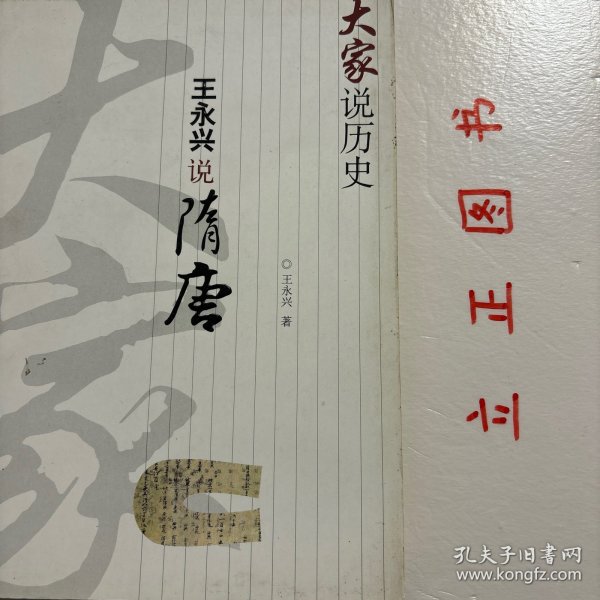 大家
大家说历史
王永兴说
隋唐
◎王永兴 著
立正图书
孔夫子旧书网
www.kongfz.com